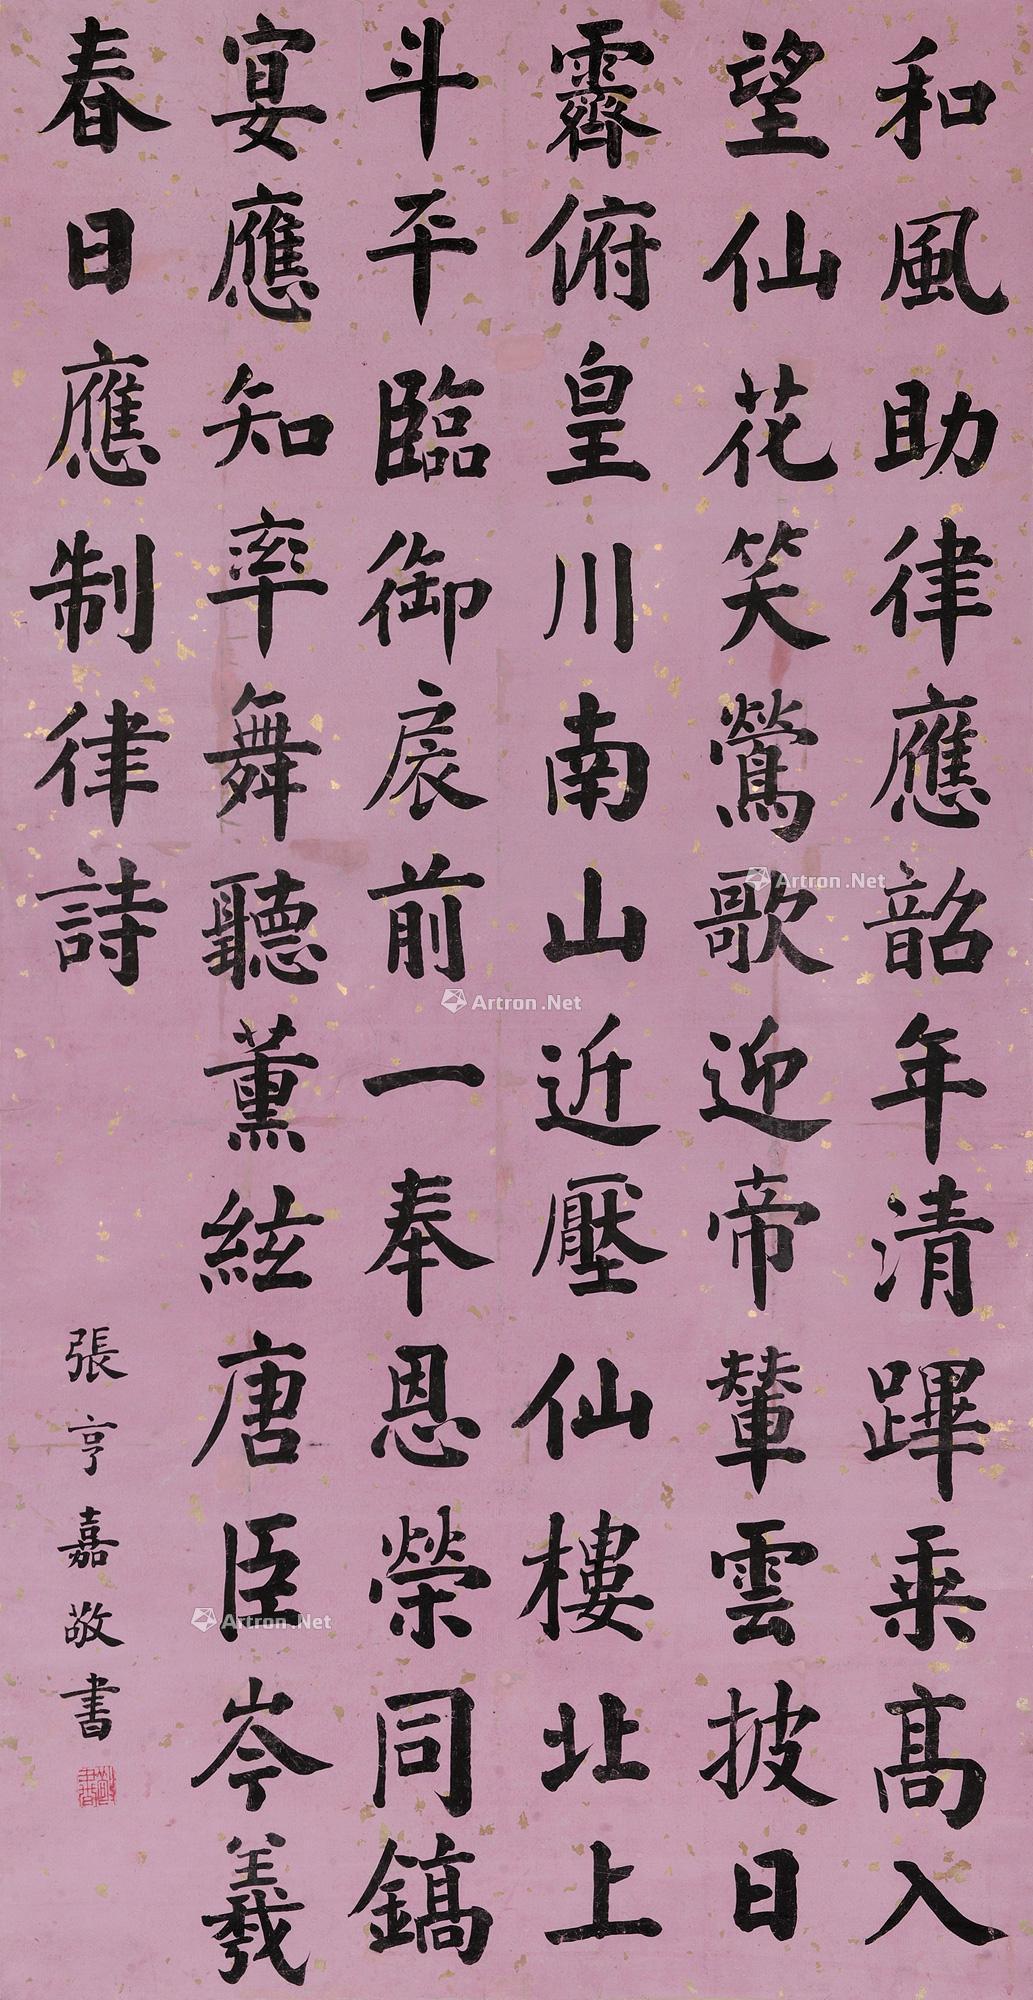 和風助律應韶年清蹕乘高入
望仙花笑鶯歌迎帝輦雲披日
霽俯皇川南山近壓仙樓北上
斗平臨御扆前一奉恩榮同鎬
宴應知率舞聽薰絃唐臣岑羲
春日應制律詩
張亨嘉敬書
Artron.Net
Artron.Net
Artron.Net